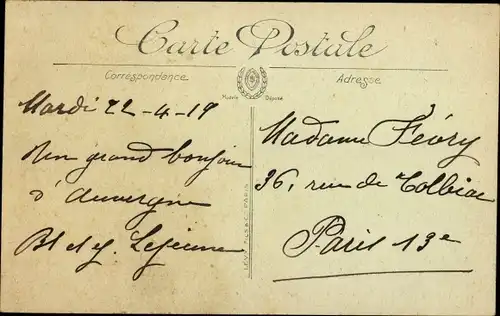 Carte Postale
Correspondance
Adresse
Modèle Déposé
Mardi 22-4-19
Un grand bonjour
d'Auvergne
Bl et y. Lejeune
LEVY FILS & Cie PARIS
Madame Févry
36, rue de Tolbiac
Paris 13e